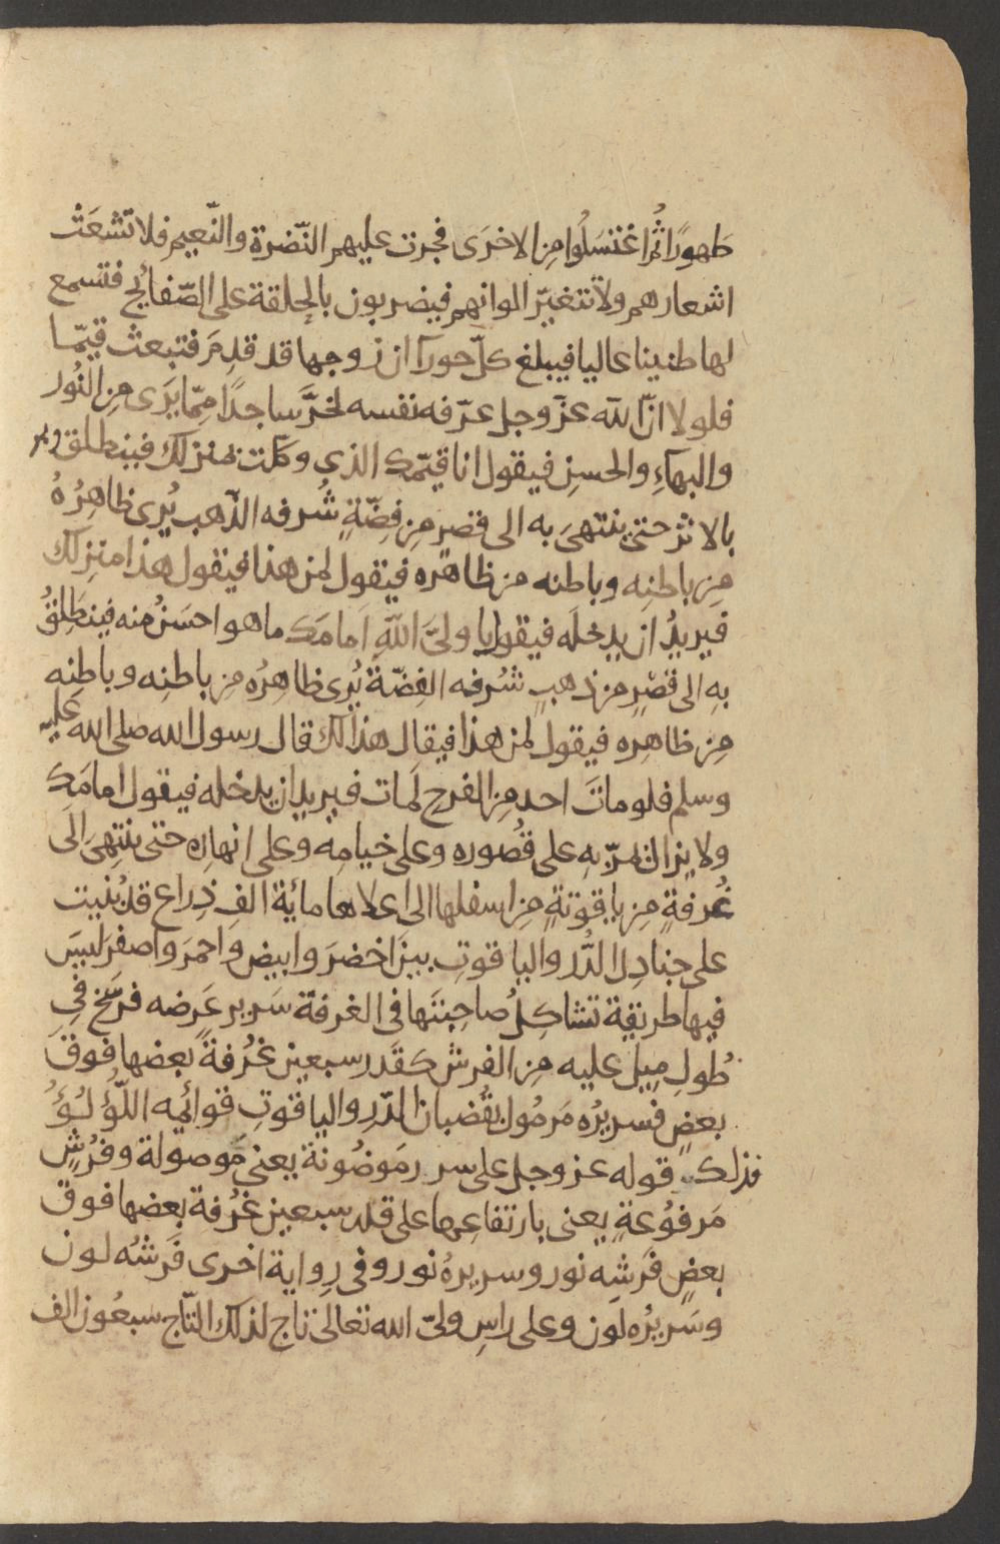 طَهورًا ثُمَّ اغتَسَلُوا مِن الاخرَى فجرت عليهم النّضرة والنّعيم فلا تشعَث
اشعارهم ولا تتغيّر الوانهم فيضربون بالحلقة على الصّفائح فتسمع
لها طنينا عاليا فيبلغ كلّ حورآ ان زوجها قد قدِمَ فتبعث قيّمها
فلولا انّ الله عزّ وجل عرّفه نفسه لخرَّ ساجدًا مِمّا يَرَى مِن النُور
والبهآءِ والحسن فيقول انا قيّمك الذى وكّلت بمنزلك فينطلق وهو
بالاثر حتى ينتهىَ به الى قصر مِن فِضّةٍ شُرفه الذّهب يُرى ظاهِرُهُ
مِن باطنِه وباطنه من ظاهره فيقول لمن هذا فيقول هذا منزلك
فيريدُ ان يدخلَه فيقول يا ولىَّ اللّهِ اَمامَك ما هو احسَنُ منه فينطَلِقُ
بِه الى قصْرٍ من ذهبٍ شُرفه الفِضّة يُرى ظاهِرُه مِن باطنِه وباطنِه
مِن ظاهِره فيقول لمن هذا فيقال هذا لك قال رسول الله صلى الله عليه
وسلم فلو ماتَ احد مِن الفرح لَمات فيريد ان يدخله فيقول امامَك
ولا يزال يمرّ بهِ على قُصُوره وعلى خيامِه وعلى انهارِه حتى ينتِهىَ الَى
غُرفةٍ مِن ياقوتةٍ مِن اسفلها الى اعلاها مائة الف ذِراع قد بُنيت
على جنادِل الدُّر والياقوتِ بينَ اخضرَ وابيض واحمرَ واصفرَ ليسَ
فيها طريقة تشاكِلُ صاحِبتَها فى الغرفة سَرير عَرضه فرسَخ فى
طُولِ مِيل عليه مِن الفرش كقَدر سبعين غُرفةً بعضها فوقَ
بعضٍ فسريرُه مَرمُول بقُضبان الدّرِ والياقوتِ قوائمه اللُّؤلُؤُ
فذلك قوله عز وجل على سرر مَوضُونة يعنى مَوصولة وفُرُشٍ
مَرفوُعةٍ يعنى بارتفاعِها على قدر سبعين غُرفة بعضها فوق
بعضٍ فَرشِه نور وسريرهُ نور وفى رِواية اخرى فَرشُه لون
وسَريرُه لَون وعلى راسِ ولىّ الله تعالى تاج لذلك التّاج سبعُون الف